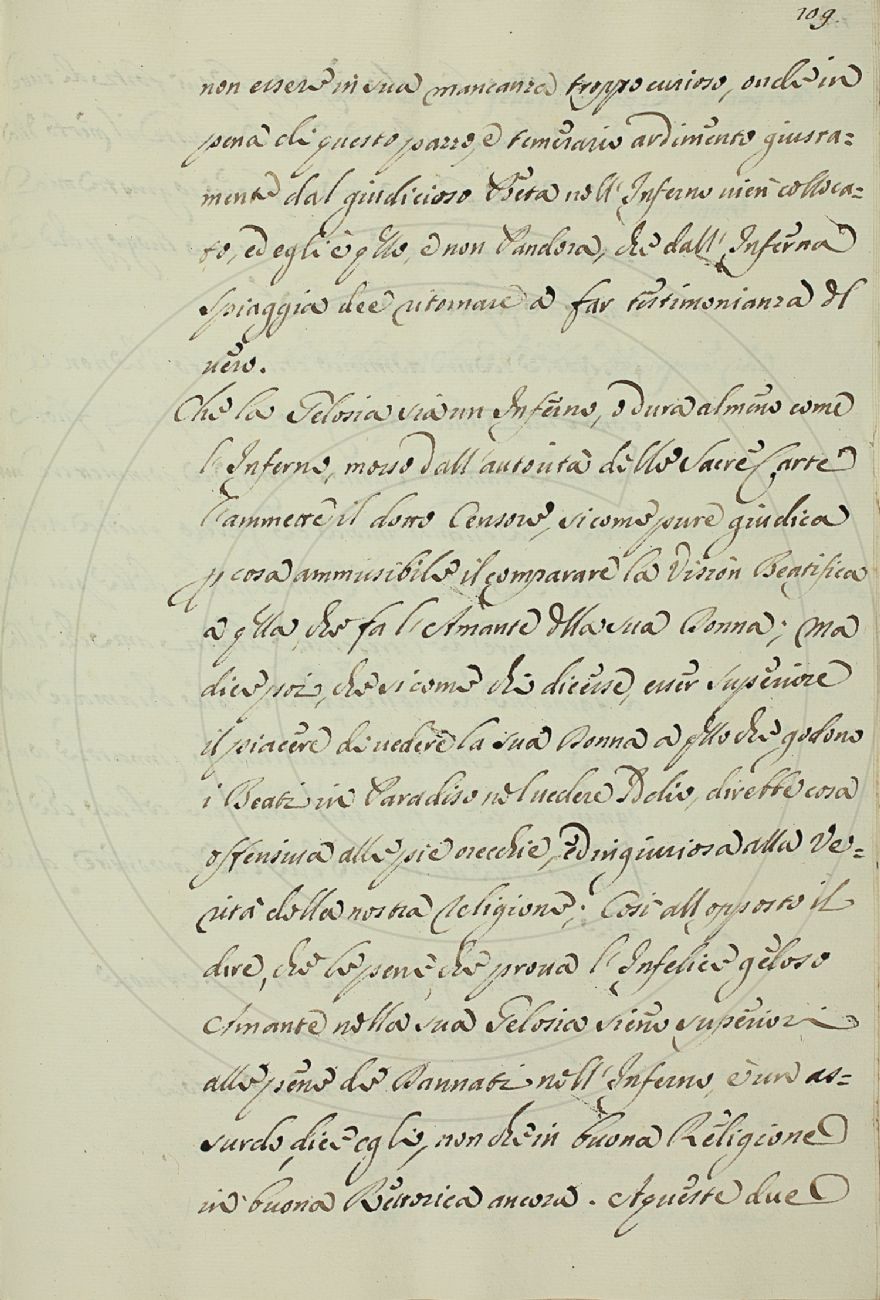 109.
non essere in sua mancanza troppo curioso, onde in
pena di questo pazzo, e temerario ardimento giusta=
mente dal giudicioso Poeta nell'Inferno vien colloca=
to, ed egli è qllo, e non Pandora, che dall'Inferna
spiaggia dee ritornare a far testimonianza dl
vero.
Che la Gelosia sia un Inferno, o dura almeno come
l'Inferno, mosso dall'autorità delle Sacre Carte
l'ammette il dotto Censore, sicome pure giudica
p cosa ammissibile il comparare la Vision Beatifica
a qlla, che fa l'Amante dlla sua Donna; ma
dice poi, che sicome chi dicesse, esser superiore
il piacere di vedere la sua Donna a qllo che godono
i Beati in Paradiso nel vedere Iddio, direbbe cosa
offensiva alle pie orecchie, ed ingiuriosa alla Ve=
rità della nostra Religione; Così all'opposto il
dire, che le pene, che prova l'Infelice geloso
Amante nella sua Gelosia sieno superiori
alle pene de Dannati nell'Inferno, è un as=
surdo, dice egli, non che in buona Religione
in buona Rettorica ancora. A queste due